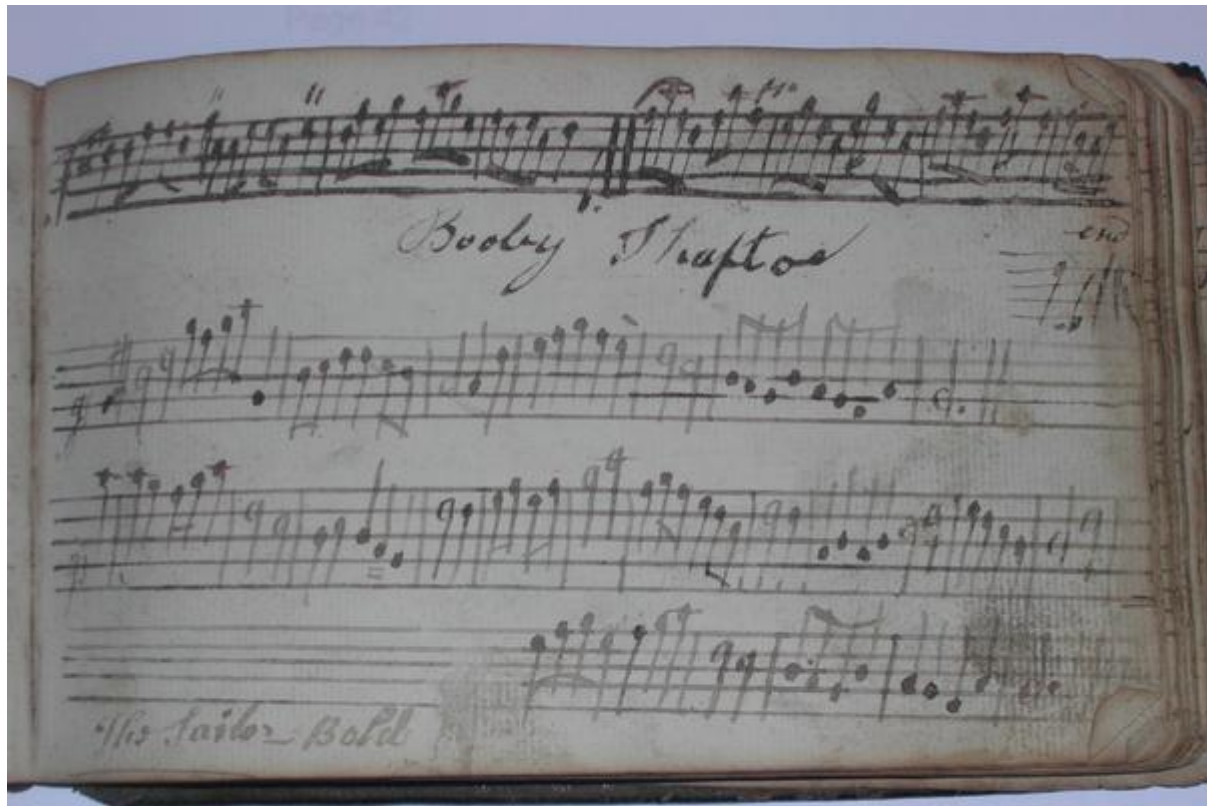 Booby Shaftoe
end
The Sailor Bold